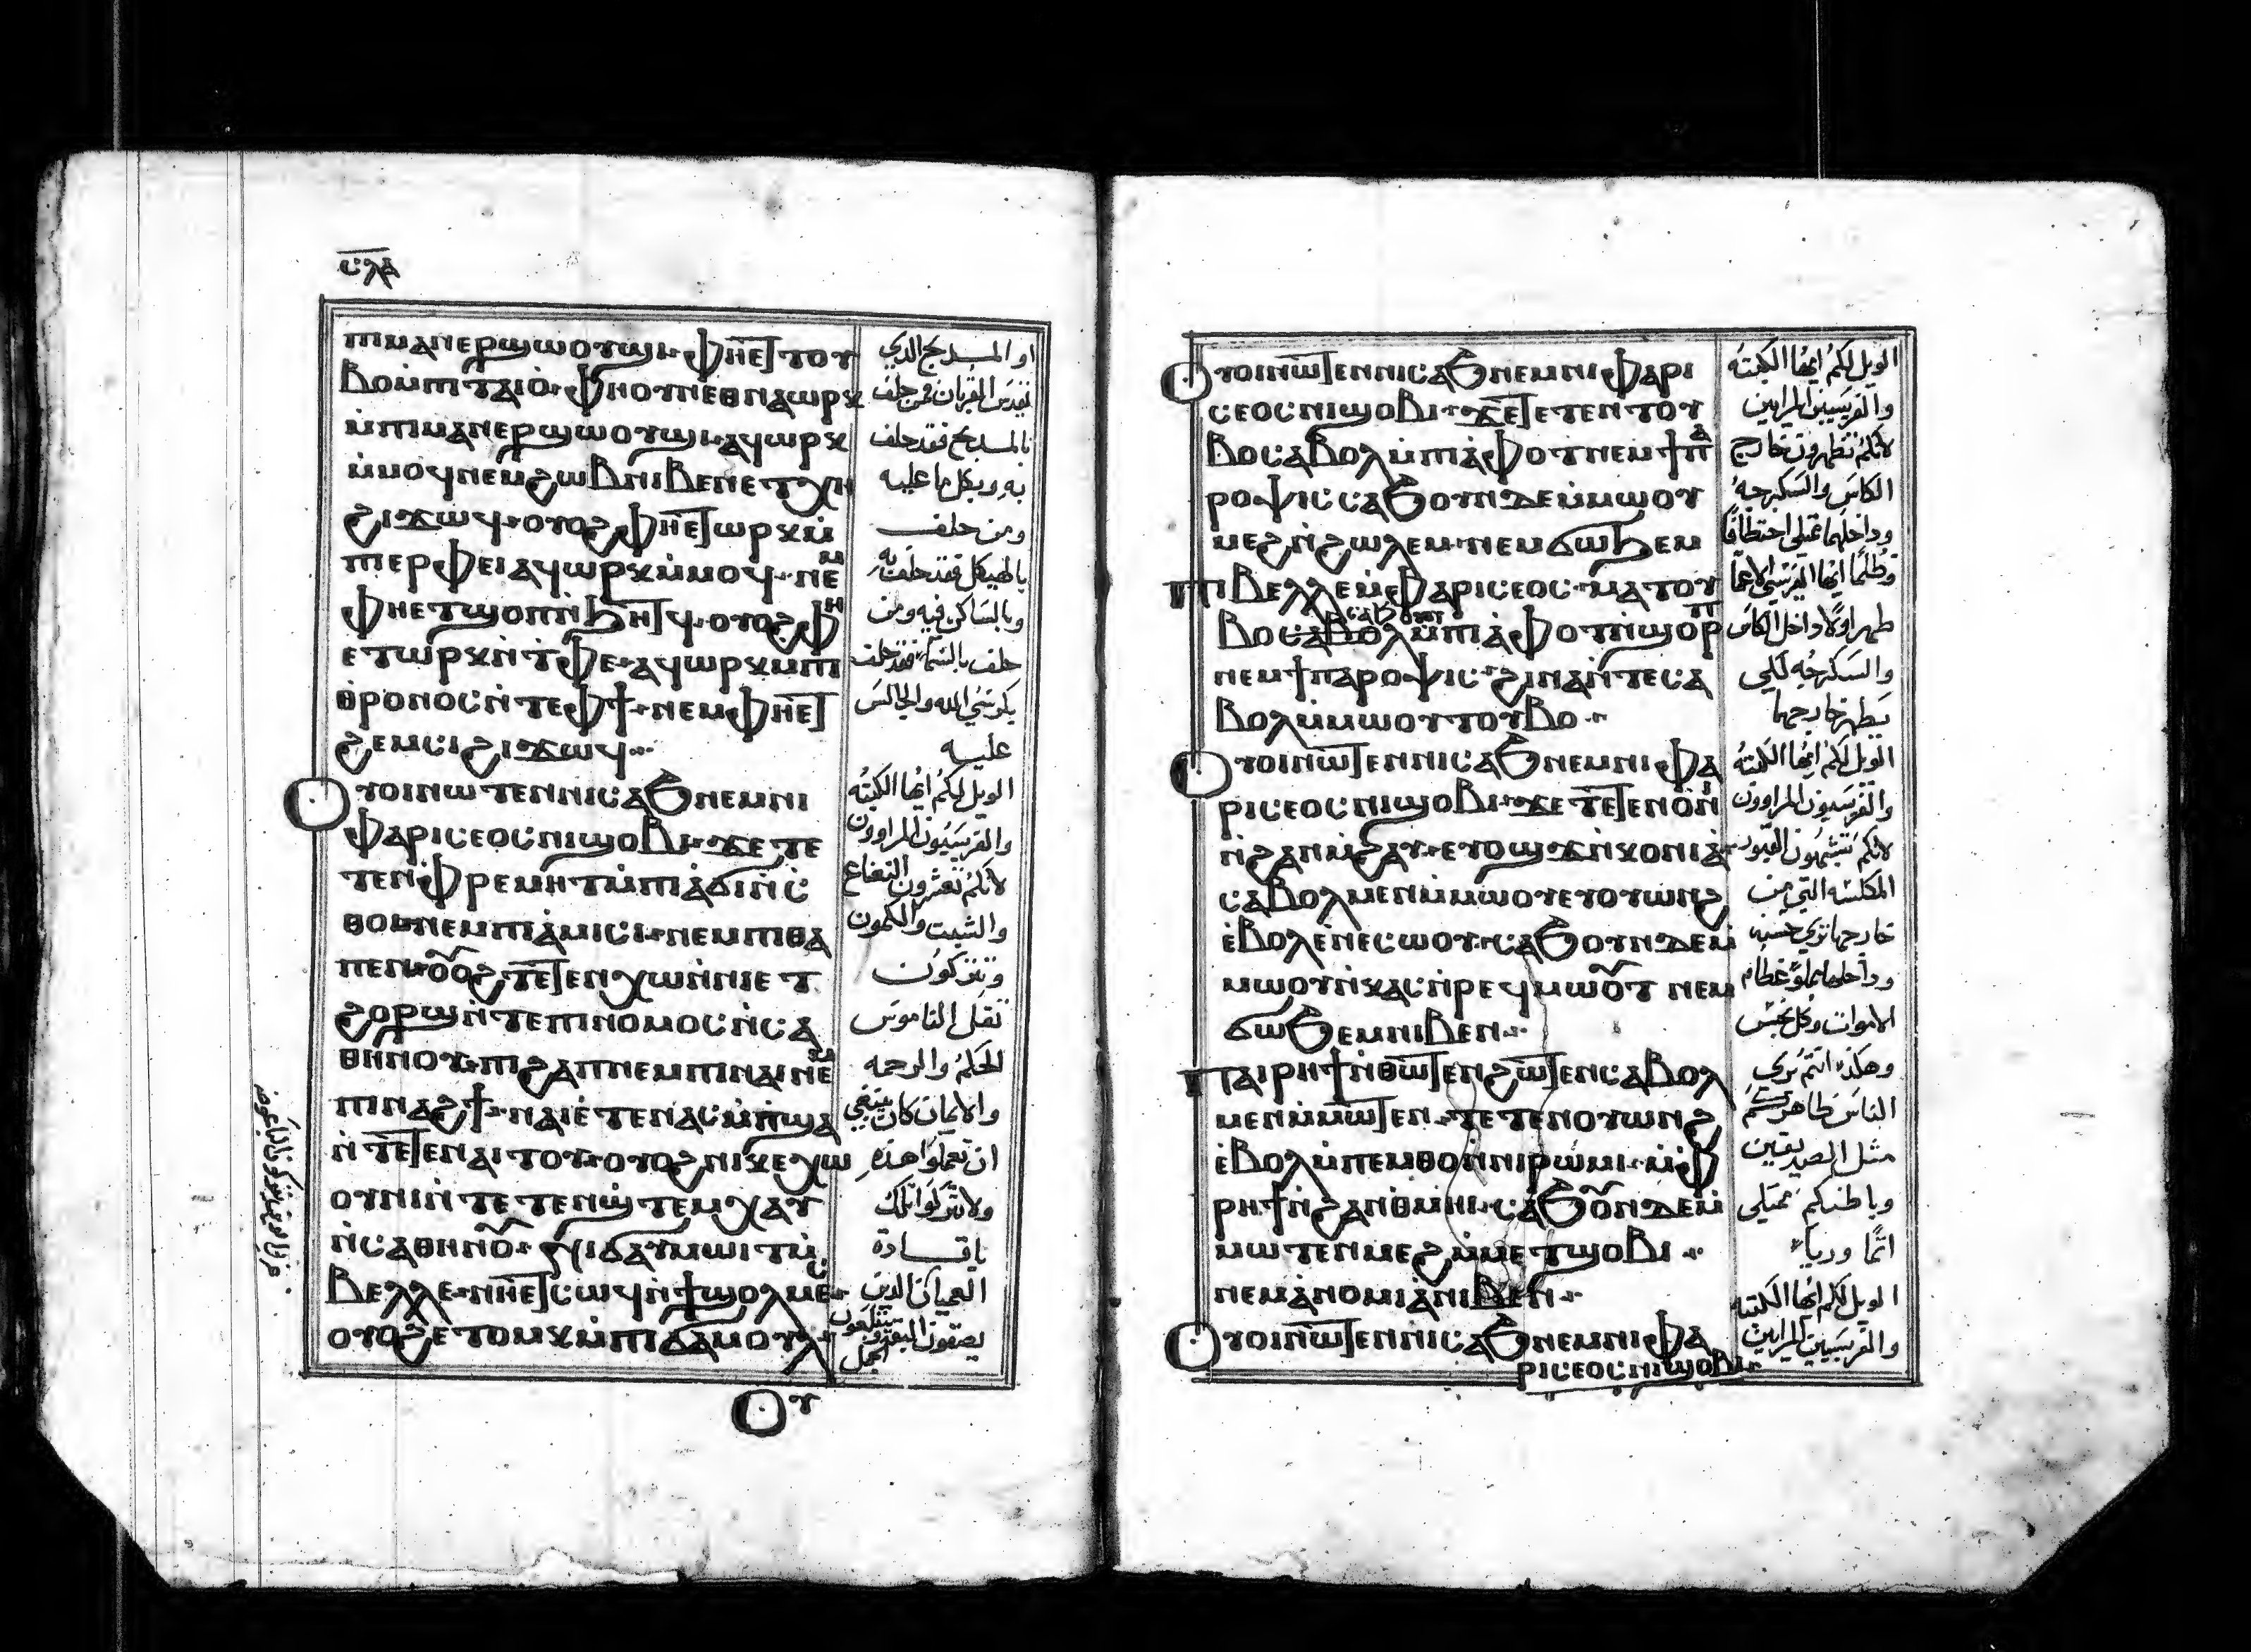 ⲥⲗⲁ
ⲡⲓⲙⲁⲛⲉⲣϣⲱⲟⲩϣⲓ ⲫⲏⲉⲧⲧⲟⲩ
ⲃⲟⲙ̇ⲡⲓⲧⲁⲓⲟ ⲫⲏⲟⲩⲛⲉⲑⲛⲁⲱⲣⲕ
ⲙ̇ⲡⲓⲙⲁⲛⲉⲣϣⲱⲟⲩϣⲓ ⲁϥⲱⲣⲕ
ⲙ̇ⲙⲟϥ ⲛⲉⲙϩⲱⲃ ⲛⲓⲃⲉⲛ ⲉⲧⲭⲏ
ϩⲓϫⲱϥ ⲟⲩⲟϩ ⲫⲏⲉⲧⲱⲣⲕ ⲙ̇
ⲡⲉⲣⲫⲉⲓ ⲁϥⲱⲣⲕ ⲙ̇ⲙⲟϥ ⲛⲉⲙ
ⲫⲏⲉⲧϣⲟⲡ ⲛ̇ϧⲏⲧϥ ⲟⲩⲟϩ ⲫⲏ
ⲉⲧⲱⲣⲕ ⲛ̇ⲧⲫⲉ ⲁϥⲱⲣⲕ ⲙⲡⲓ
ⲑⲣⲟⲛⲟⲥ ⲛ̇ⲧⲉⲫϯ ⲛⲉⲙ ⲫⲏⲉⲧ
ϩⲉⲙⲥⲓ ϩⲓϫⲱϥ
ⲟⲩⲟⲓ ⲛⲱⲧⲉⲛ ⲛⲓⲥⲁϧ ⲛⲉⲙ ⲛⲓ
ⲫⲁⲣⲓⲥⲉⲟⲥ ⲛⲓϣⲟⲃⲓ ϫⲉ ⲧⲉ
ⲧⲉⲛϥⲣⲉⲙⲏⲧ ⲙ̇ⲡⲓⲁϭⲓⲛ ⲥ
ⲑⲟⲓ ⲛⲉⲙ ⲡⲓⲁⲙⲓⲥⲓ ⲛⲉⲙ ⲡⲓⲑⲁ
ⲡⲉⲛ ⲟⲩⲟϩ ⲧⲉⲧⲉⲛⲭⲱ ⲛ̇ⲛⲓⲉⲧ
ϩⲟⲣϣ ⲛ̇ⲧⲉ ⲡⲓⲛⲟⲙⲟⲥ ⲛ̇ⲥⲁ
ⲑⲏⲛⲟⲩ ⲡⲓϩⲁⲡ ⲛⲉⲙ ⲡⲓⲛⲁⲓ ⲛⲉⲙ
ⲡⲓⲛⲁϩϯ ⲛⲁⲓ ⲉⲧⲉⲛⲁⲥⲙ̇ⲡϣⲁ
ⲛ̇ⲧⲉⲧⲉⲛⲁⲓⲧⲟⲩ ⲟⲩⲟϩ ⲛⲓⲕⲉⲭⲱ
ⲟⲩⲛⲓ ⲛ̇ⲧⲉⲧⲉⲛϣ̇ⲧⲉⲙⲭⲁⲩ
ⲛ̇ⲥⲁⲑⲏⲛⲟⲩ ⲛⲓϭⲁⲩⲙⲱⲓⲧ ⲙ̇
ⲃⲉⲗⲗⲉ ⲛⲏⲉⲧⲥⲱϥ ⲛ̇ϯϣⲟⲗⲙⲉⲥ
ⲟⲩⲟϩ ⲉⲧⲱⲙⲕ ⲙ̇ⲡⲓϭⲁⲙⲟⲩⲗ
ⲟⲩ
او المدبح الدي
يقدس القربان فمن حلف
بالمدبح فقد حلف
به وبكل ما عليه
ومن حلف
بالهيكل فقد حلف به
وبالساكن فيه ومن
حلف بالسما فقد حلف
بكرسي الله والجالس
عليه
الويل لكم ايها الكتبه
والفريسيون المراوون
لانكم تعشرون النعناع
والشبت والكمون
وتتركون
ثقل الناموس
الحكم والرحمه
والايمان كان ينبغي
ان تعملوا هذه
ولا تتركوا تلك
يا قادة
العميان الدين
يصفون البعوضه
ويبتلعون الجمل
ⲟⲩⲟⲓ ⲛⲱⲧⲉⲛ ⲛⲓⲥⲁϧ ⲛⲉⲙ ⲛⲓⲫⲁⲣⲓ
ⲥⲉⲟⲥ ⲛⲓϣⲟⲃⲓ ϫⲉ ⲧⲉⲧⲉⲛⲧⲟⲩ
ⲃⲟ ⲥⲁⲃⲟⲗ ⲙ̇ⲡⲓⲁⲫⲟⲧ ⲛⲉⲙ ϯⲡⲁ
ⲣⲟⲯⲓⲥ ⲥⲁϧⲟⲩⲛ ⲇⲉ ⲙ̇ⲙⲱⲟⲩ
ⲙⲉϩ ⲛ̇ϩⲱⲗⲉⲙ ⲛⲉⲙ ϭⲱϧⲉⲙ
ⲡⲓⲃⲉⲗⲗⲉ ⲙ̇ⲫⲁⲣⲓⲥⲉⲟⲥ ⲙⲁⲧⲟⲩ
ⲃⲟ ⲥⲁϧⲟⲩⲛ ⲙ̇ⲡⲓⲁⲫⲟⲧ ⲛ̇ϣⲟⲣⲡ
ⲛⲉⲙ ϯⲡⲁⲣⲟⲯⲓⲥ ϩⲓⲛⲁ ⲛ̇ⲧⲉ ⲥⲁ
ⲃⲟⲗ ⲙ̇ⲙⲱⲟⲩ ⲧⲟⲩⲃⲟ
ⲟⲩⲟⲓ ⲛⲱⲧⲉⲛ ⲛⲓⲥⲁϧ ⲛⲉⲙ ⲛⲓⲫⲁ
ⲣⲓⲥⲉⲟⲥ ⲛⲓϣⲟⲃⲓ ϫⲉ ⲧⲉⲧⲉⲛⲟⲛⲓ
ⲛ̇ϩⲁⲛⲙ̇ϩⲁⲩ ⲉⲩⲟϣϫ ⲛ̇ⲕⲟⲛⲓⲁ
ⲥⲁⲃⲟⲗ ⲙⲉⲛ ⲙ̇ⲙⲱⲟⲩ ⲉⲩⲟⲩⲱⲛϩ
ⲉ̇ⲃⲟⲗ ⲉⲛⲉⲥⲱⲟⲩ ⲥⲁϧⲟⲩⲛ ⲇⲉ ⲙ̇
ⲙⲱⲟⲩ ⲛ̇ⲕⲁⲥ ⲛ̇ⲣⲉϥⲙⲱⲟⲩⲧ ⲛⲉⲙ
ϭⲱϧⲉⲙ ⲛⲓⲃⲉⲛ
ⲡⲁⲓⲣⲏϯ ⲛ̇ⲑⲱⲧⲉⲛ ϩⲱⲧⲉⲛ ⲥⲁⲃⲟⲗ
ⲙⲉⲛ ⲙ̇ⲙⲱⲧⲉⲛ ⲧⲉⲧⲉⲛⲟⲩⲱⲛϩ
ⲉ̇ⲃⲟⲗ ⲙ̇ⲡⲉⲙⲑⲟ ⲛ̇ⲛⲓⲣⲱⲙⲓ ⲙ̇ⲫ
ⲣⲏϯ ⲛ̇ϩⲁⲛⲑⲙⲏⲓ ⲥⲁϧⲟⲩⲛ ⲇⲉ ⲙ̇
ⲙⲱⲧⲉⲛ ⲙⲉϩ ⲙ̇ⲙⲉⲧϣⲟⲃⲓ
ⲛⲉⲙ ⲁⲛⲟⲙⲓⲁ ⲛⲓⲃⲉⲛ
ⲟⲩⲟⲓ ⲛⲱⲧⲉⲛ ⲛⲓⲥⲁϧ ⲛⲉⲙ ⲛⲓⲫⲁ
ⲣⲓⲥⲉⲟⲥ ⲛⲓϣⲟⲃⲓ
الويل لكم ايها الكتبه
والفريسيين المرايين
لانكم تطهرون خارج
الكاس والسكرجه
وداخلهما ممتلى اختطافا
وظلما ايها الفريسي الاعما
طهر اولا داخل الكاس
والسكرجه لكي
يطهر خارجهما
الويل لكم ايها الكتبه
والفريسيون المراوون
لانكم تشبهون القبور
المكلسه التي من
خارجها تري حسنه
وداخلها مملوه عظام
الاموات وكل نجس
وهكذا انتم تري
الناس ظاهركم
مثل الصديقين
وباطنكم ممتلى
اثما ورياء
الويل لكم ايها الكتبه
والفريسيين المرايين